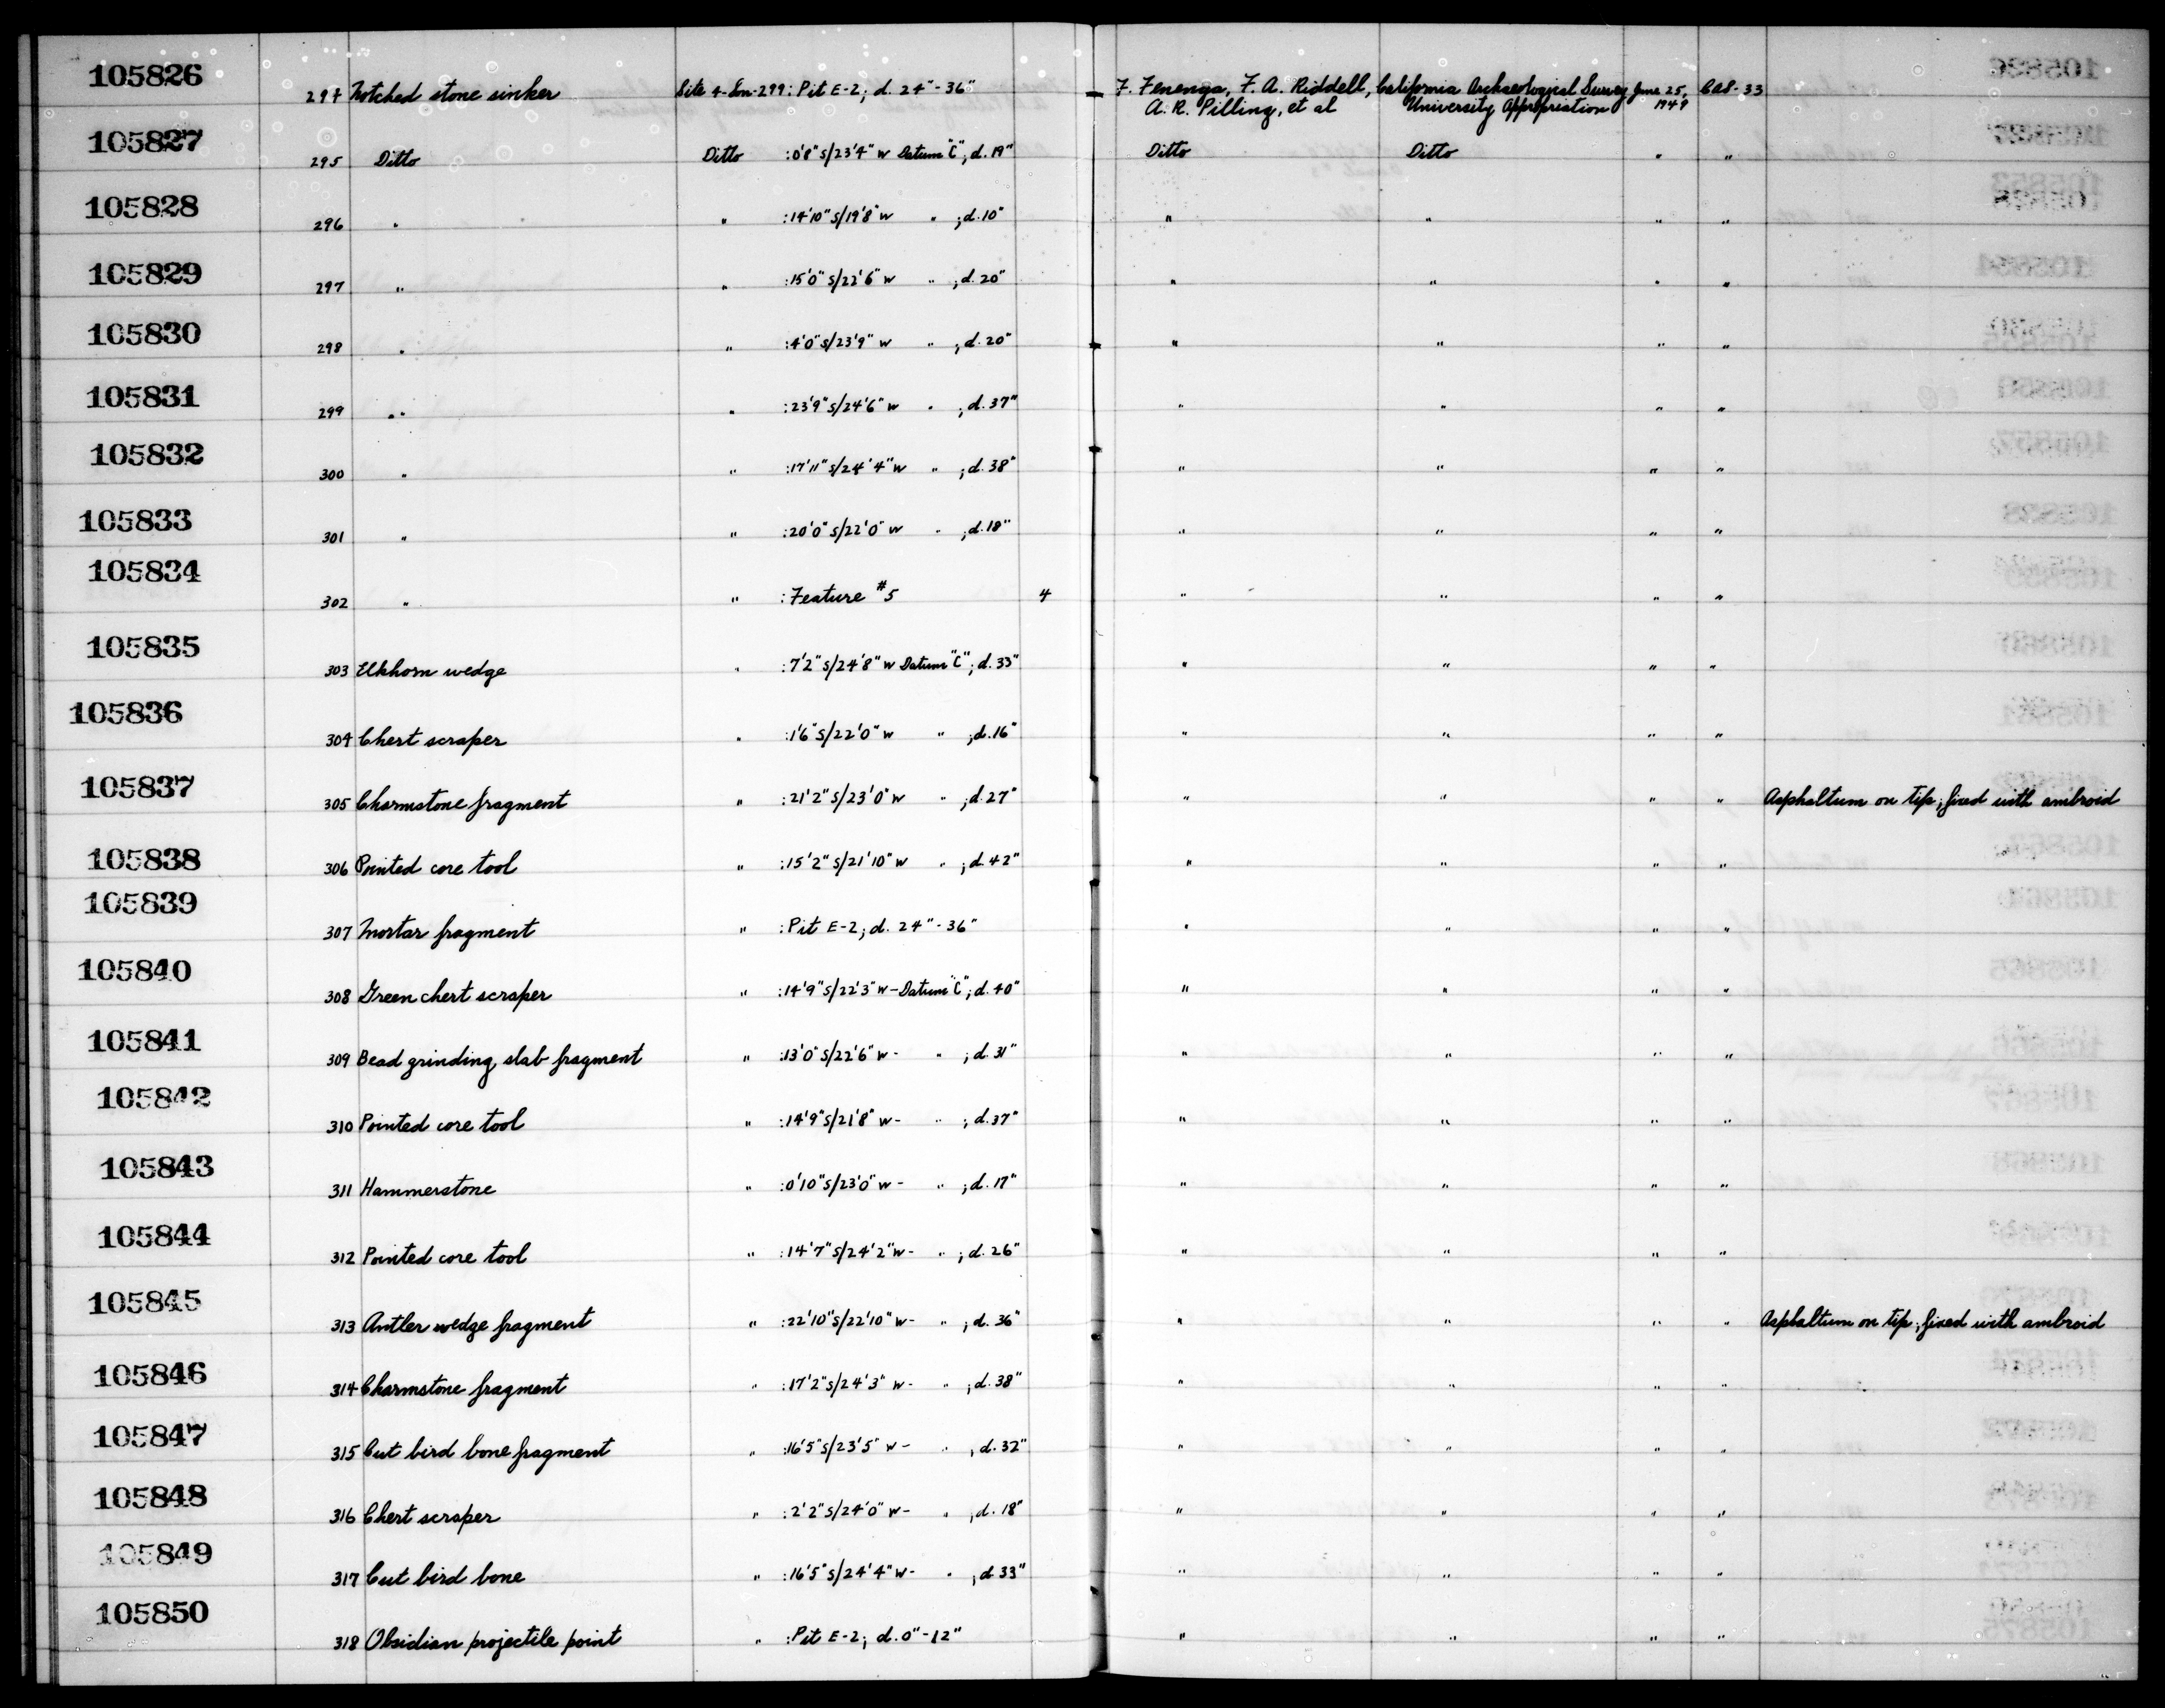 105826 294 Notched stone sinker Site 4-Son-299: Pit E-2; d. 24"-36" F. Fenenga, F. A. Riddell, California Archaeological Survey June 25, CAS-33
A. R. Pilling, et al University Appropriation 1949
105827 295 Ditto Ditto :0'8"S/23'4"W Datum "C"; d. 19" Ditto Ditto " "
105828 296 " " :14'10"S/19'8"W " ; d. 10" " " " "
105829 297 " " :15'0"S/22'6"W " ; d. 20" " " " "
105830 298 " " :4'0"S/23'9"W " ; d. 20" " " " "
105831 299 " " :23'9"S/24'6"W " ; d. 37" " " " "
105832 300 " " :17'11"S/24'4"W " ; d. 38" " " " "
105833 301 " " :20'0"S/22'0"W " ; d. 18" " " " "
105834 302 " " :Feature #5 4 " " " "
105835 303 Elkhorn wedge " :7'2"S/24'8"W Datum "C"; d. 33" " " " "
105836 304 Chert scraper " :1'6"S/22'0"W " ; d. 16" " " " "
105837 305 Charmstone fragment " :21'2"S/23'0"W " ; d. 27" " " " " Asphaltum on tip; fixed with ambroid
105838 306 Pointed core tool " :15'2"S/21'10"W " ; d. 42" " " " "
105839 307 Mortar fragment " :Pit E-2; d. 24"-36" " " " "
105840 308 Green chert scraper " :14'9"S/22'3"W-Datum "C"; d. 40" " " " "
105841 309 Bead grinding slab fragment " :13'0"S/22'6"W- " ; d. 31" " " " "
105842 310 Pointed core tool " :14'9"S/21'8"W- " ; d. 37" " " " "
105843 311 Hammerstone " :0'10"S/23'0"W- " ; d. 17" " " " "
105844 312 Pointed core tool " :14'7"S/24'2"W- " ; d. 26" " " " "
105845 313 Antler wedge fragment " :22'10"S/22'10"W- " ; d. 36" " " " " Asphaltum on tip; fixed with ambroid
105846 314 Charmstone fragment " :17'2"S/24'3"W- " ; d. 38" " " " "
105847 315 Cut bird bone fragment " :16'5"S/23'5"W- " ; d. 32" " " " "
105848 316 Chert scraper " :2'2"S/24'0"W- " ; d. 18" " " " "
105849 317 Cut bird bone " :16'5"S/24'4"W- " ; d. 33" " " " "
105850 318 Obsidian projectile point " :Pit E-2; d. 0"-12" " " " "